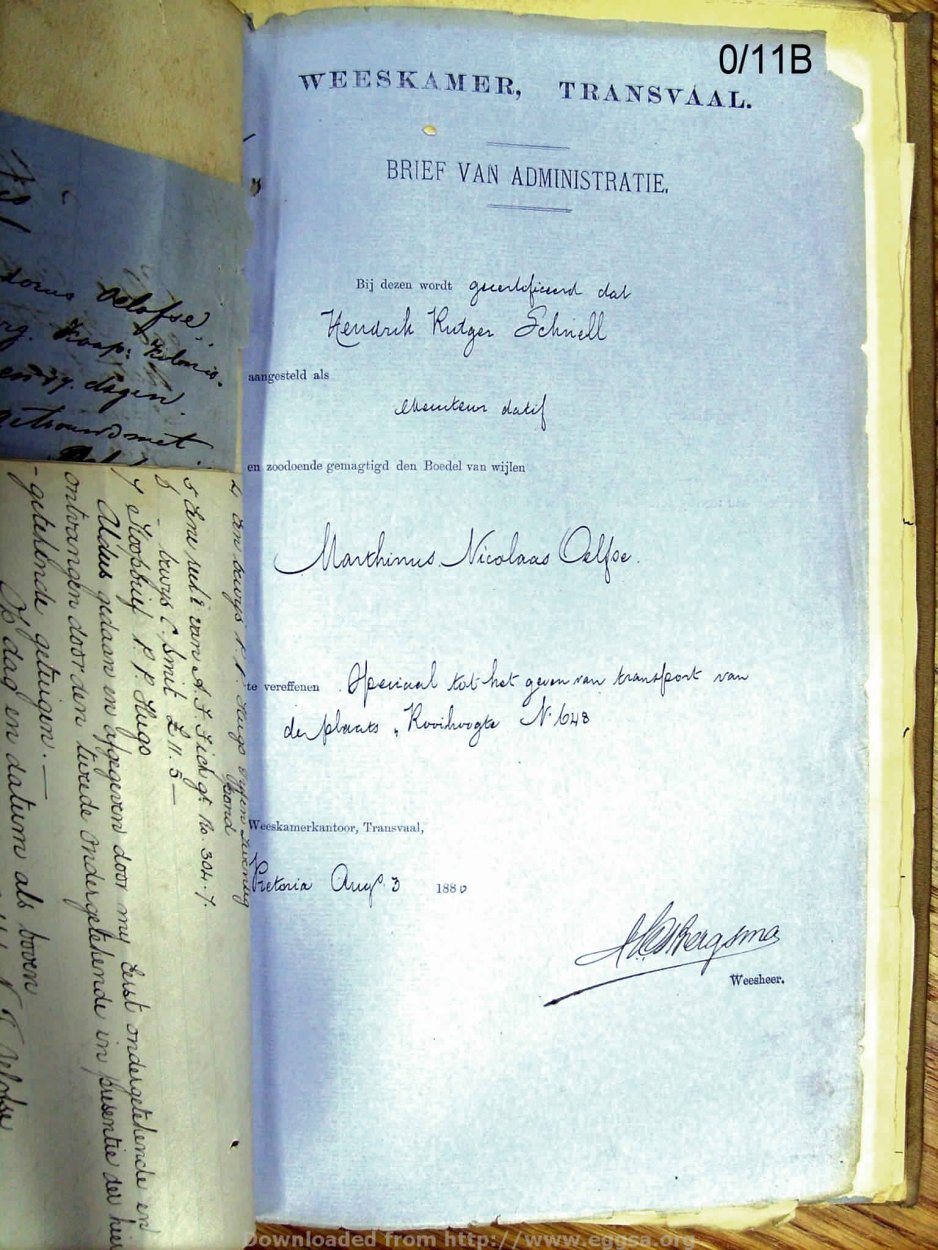 0/11B
WEESKAMER, TRANSVAAL.
BRIEF VAN ADMINISTRATIE.
Bij dezen wordt gecertificeerd dat
Hendrik Rutger Schnell
aangesteld als
executeur datif
en zoodoende gemagtigd den Boedel van wijlen
Marthinus Nicolaas Oelfse.
te vereffenen Speciaal tot het geven van transport van
de plaats "Rooihoogte N. 648
Weeskamerkantoor, Transvaal,
Pretoria Aug. 3 1880
Bergsma
Weesheer.
Oelofse
dagen
getrouwd met
bewys C. Smit £11.5 —
P. P. Hugo
Aldus gedaan en afgegeven door my eerst ondergetekende en
ontvangen door den tweede ondergetekende in presentie der hier
getekende getuigen. —
dag en datum als boven
Downloaded from http://www.eggsa.org